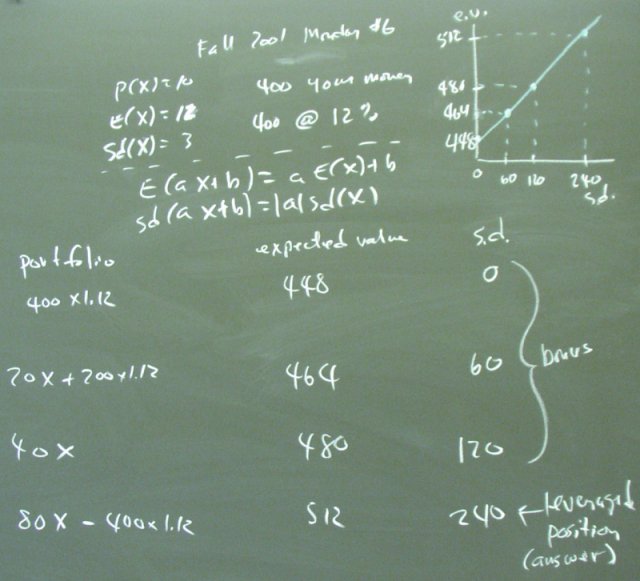 Fall 2001 Monday #6
P(X)=10 400 your money
E(X)=12 400 @ 12%
sd(X)=3
E(aX+b)=aE(X)+b
sd(aX+b)=|a|sd(X)
e.v.
512
480
464
448
0 60 120 240
s.d.
portfolio expected value s.d.
400x1.12 448 0
20X+200x1.12 464 60
bonus
40X 480 120
80X-400x1.12 512 240 ← leveraged
position
(answer)